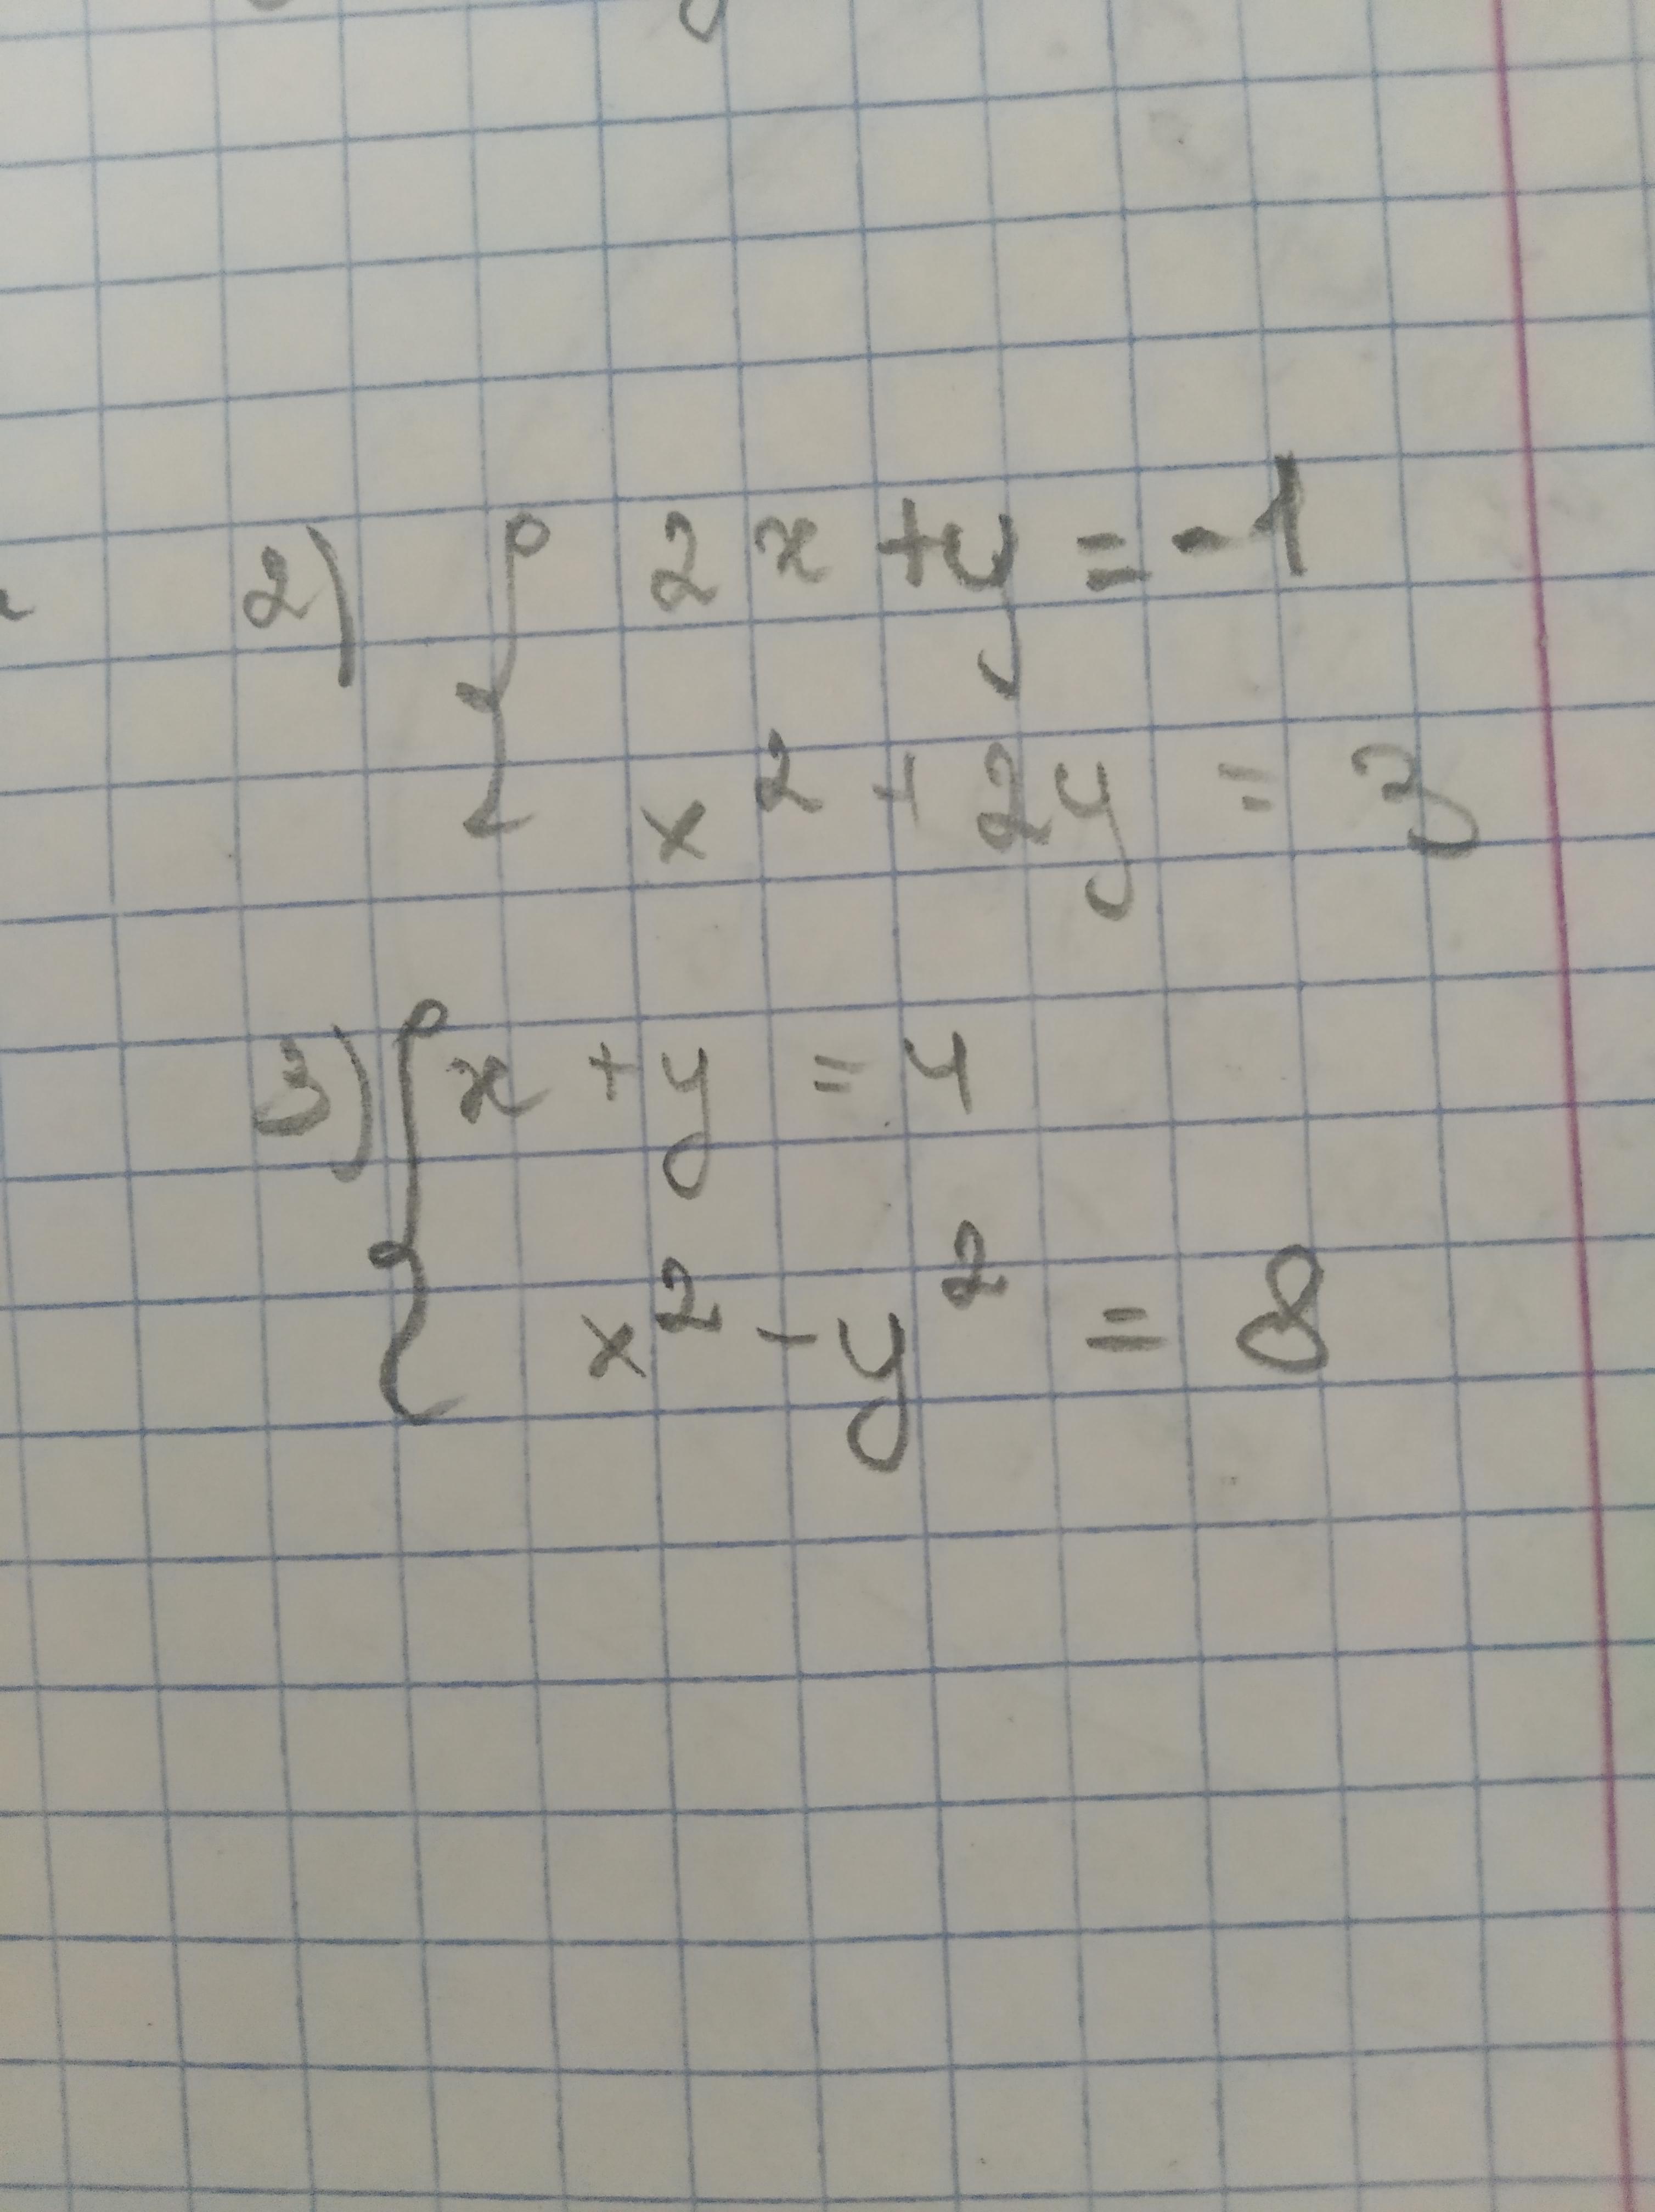 2) { 2x + y = -1
x² + 2y = 3
3) { x + y = 4
x² - y² = 8